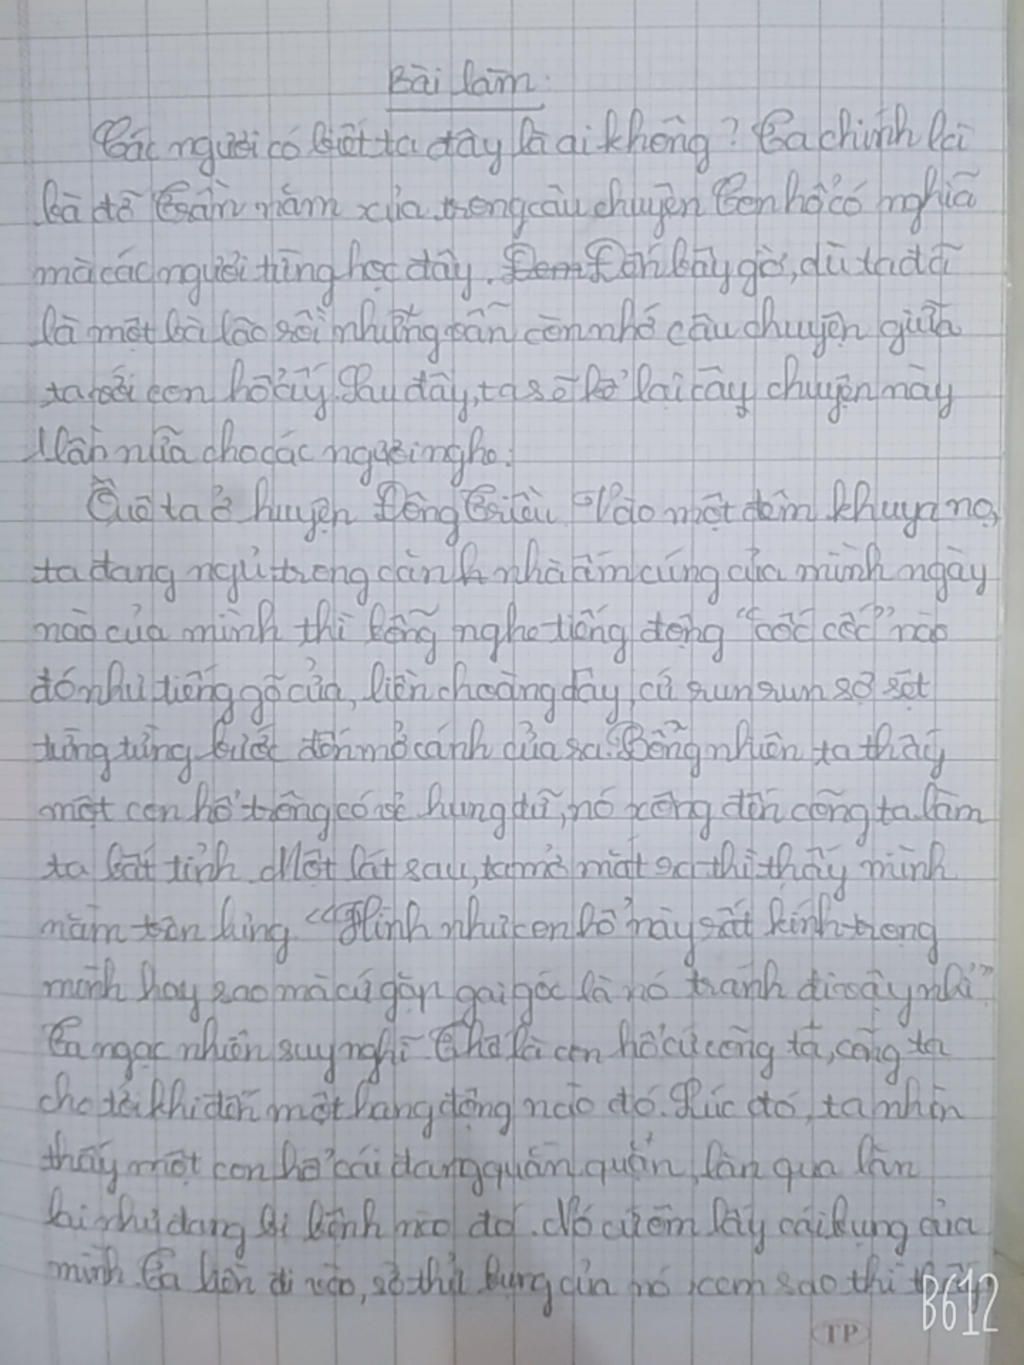 Bài làm:
Các người có biết ta đây là ai không? Ta chính là
bà đỡ Trần năm xưa trong câu chuyện Con hổ có nghĩa
mà các người từng học đây. Đến bây giờ, dù ta đã
là một bà lão rồi nhưng vẫn còn nhớ câu chuyện giữa
ta với con hổ ấy. Sau đây, ta sẽ kể lại cây chuyện này
1 lần nữa cho các người nghe.
Quê ta ở huyện Đông Triều. Vào một đêm khuya nọ,
ta đang ngủ trong cảnh nhà ấm cúng của mình ngày
nào của mình thì bỗng nghe tiếng động "cốc cốc" nào
đó như tiếng gõ cửa, liền choàng dậy, cứ run run sợ sệt
từng từng bước đến mở cánh cửa ra. Bỗng nhiên ta thấy
một con hổ trông có vẻ hung dữ, nó xông đến cõng ta làm
ta bất tỉnh. Một lát sau, ta mở mắt ra thì thấy mình
nằm trên lưng. "Hình như con hổ này rất kính trọng
mình hay sao mà cứ gặp gai góc là nó tránh đi vậy nhỉ"
Ta ngạc nhiên suy nghĩ. Thế là con hổ cứ cõng ta, cõng ta
cho tới khi đến một hang động nào đó. Lúc đó, ta nhìn
thấy một con hổ cái đang quằn quằn, lăn qua lăn
lại như đang bị bệnh nào đó. Nó cứ ôm lấy cái bụng của
mình. Ta liền đi vào, sờ thử bụng của nó xem sao thì thấy
TP
B612